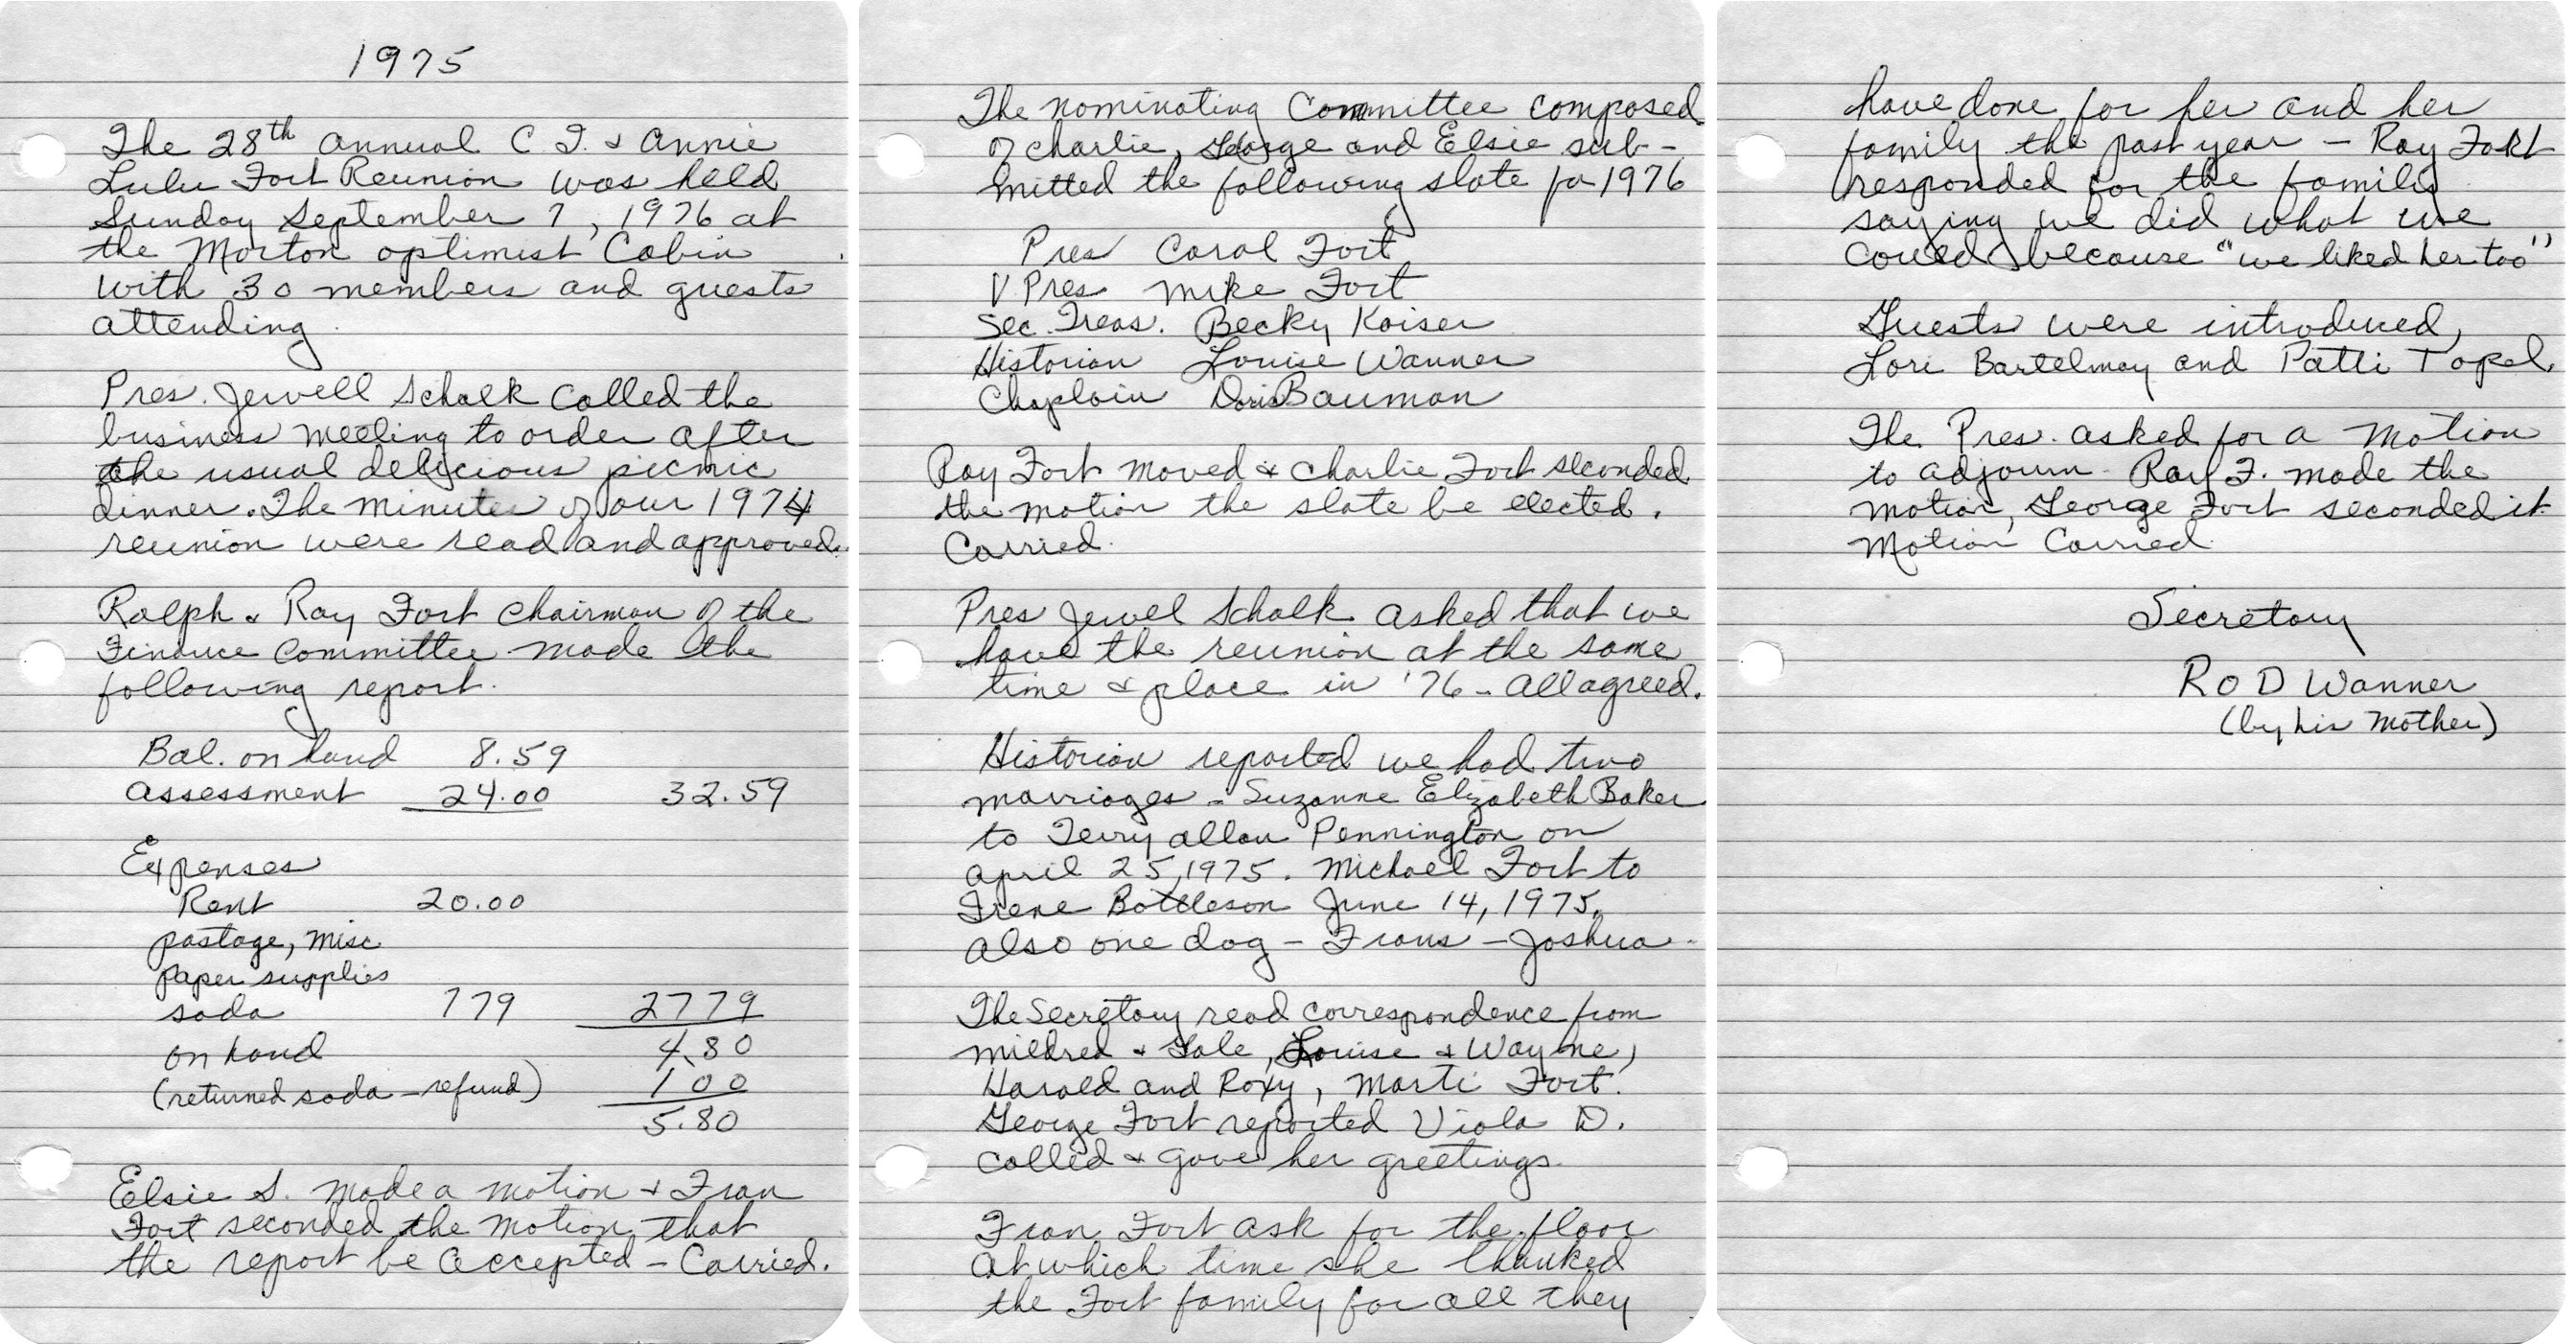 1975
The 28th annual C F. & Annie
Lulu Fort Reunion was held
Sunday September 7, 1976 at
the Morton optimist Cabin
with 30 members and guests
attending.
Pres. Jewell Schalk called the
business meeting to order after
the usual delicious picnic
dinner. The minutes of our 1974
reunion were read and approved.
Ralph & Ray Fort chairman of the
Finance Committee made the
following report.
Bal. on hand 8.59
assessment 24.00 32.59
Expenses
Rent 20.00
postage, misc
paper supplies
soda 779 2779
on hand 4.80
(returned soda - refund) 1 00
5.80
Elsie S. made a motion & Fran
Fort seconded the motion that
the report be accepted - Carried.
The nominating Committee composed
of Charlie, George and Elsie sub-
mitted the following slate for 1976
Pres Carol Fort
V Pres Mike Fort
Sec. Treas. Becky Kaiser
Historian Louise Wanner
Chaplain Doris Bauman
Ray Fort moved & Charlie Fort seconded
the motion the slate be elected.
Carried.
Pres Jewel Schalk asked that we
have the reunion at the same
time & place in '76 - All agreed.
Historian reported we had two
marriages - Suzanne Elizabeth Baker
to Terry allan Pennington on
April 25, 1975. Michael Fort to
Irene Bottleson June 14, 1975.
also one dog - Frans - Joshua.
The Secretary read correspondence from
Mildred & Gale, Louise & Wayne,
Harold and Roxy, Marti Fort.
George Fort reported Viola D.
called & gave her greetings.
Fran Fort ask for the floor
at which time she thanked
the Fort family for all they
have done for her and her
family the past year - Ray Fort
responded for the family
saying we did what we
could because "we liked her too"
Guests were introduced,
Lori Bartelmay and Patti Topel.
The Pres. asked for a motion
to adjourn. Ray F. made the
motion, George Fort seconded it
Motion Carried
Secretary
RoD Wanner
(by his mother)